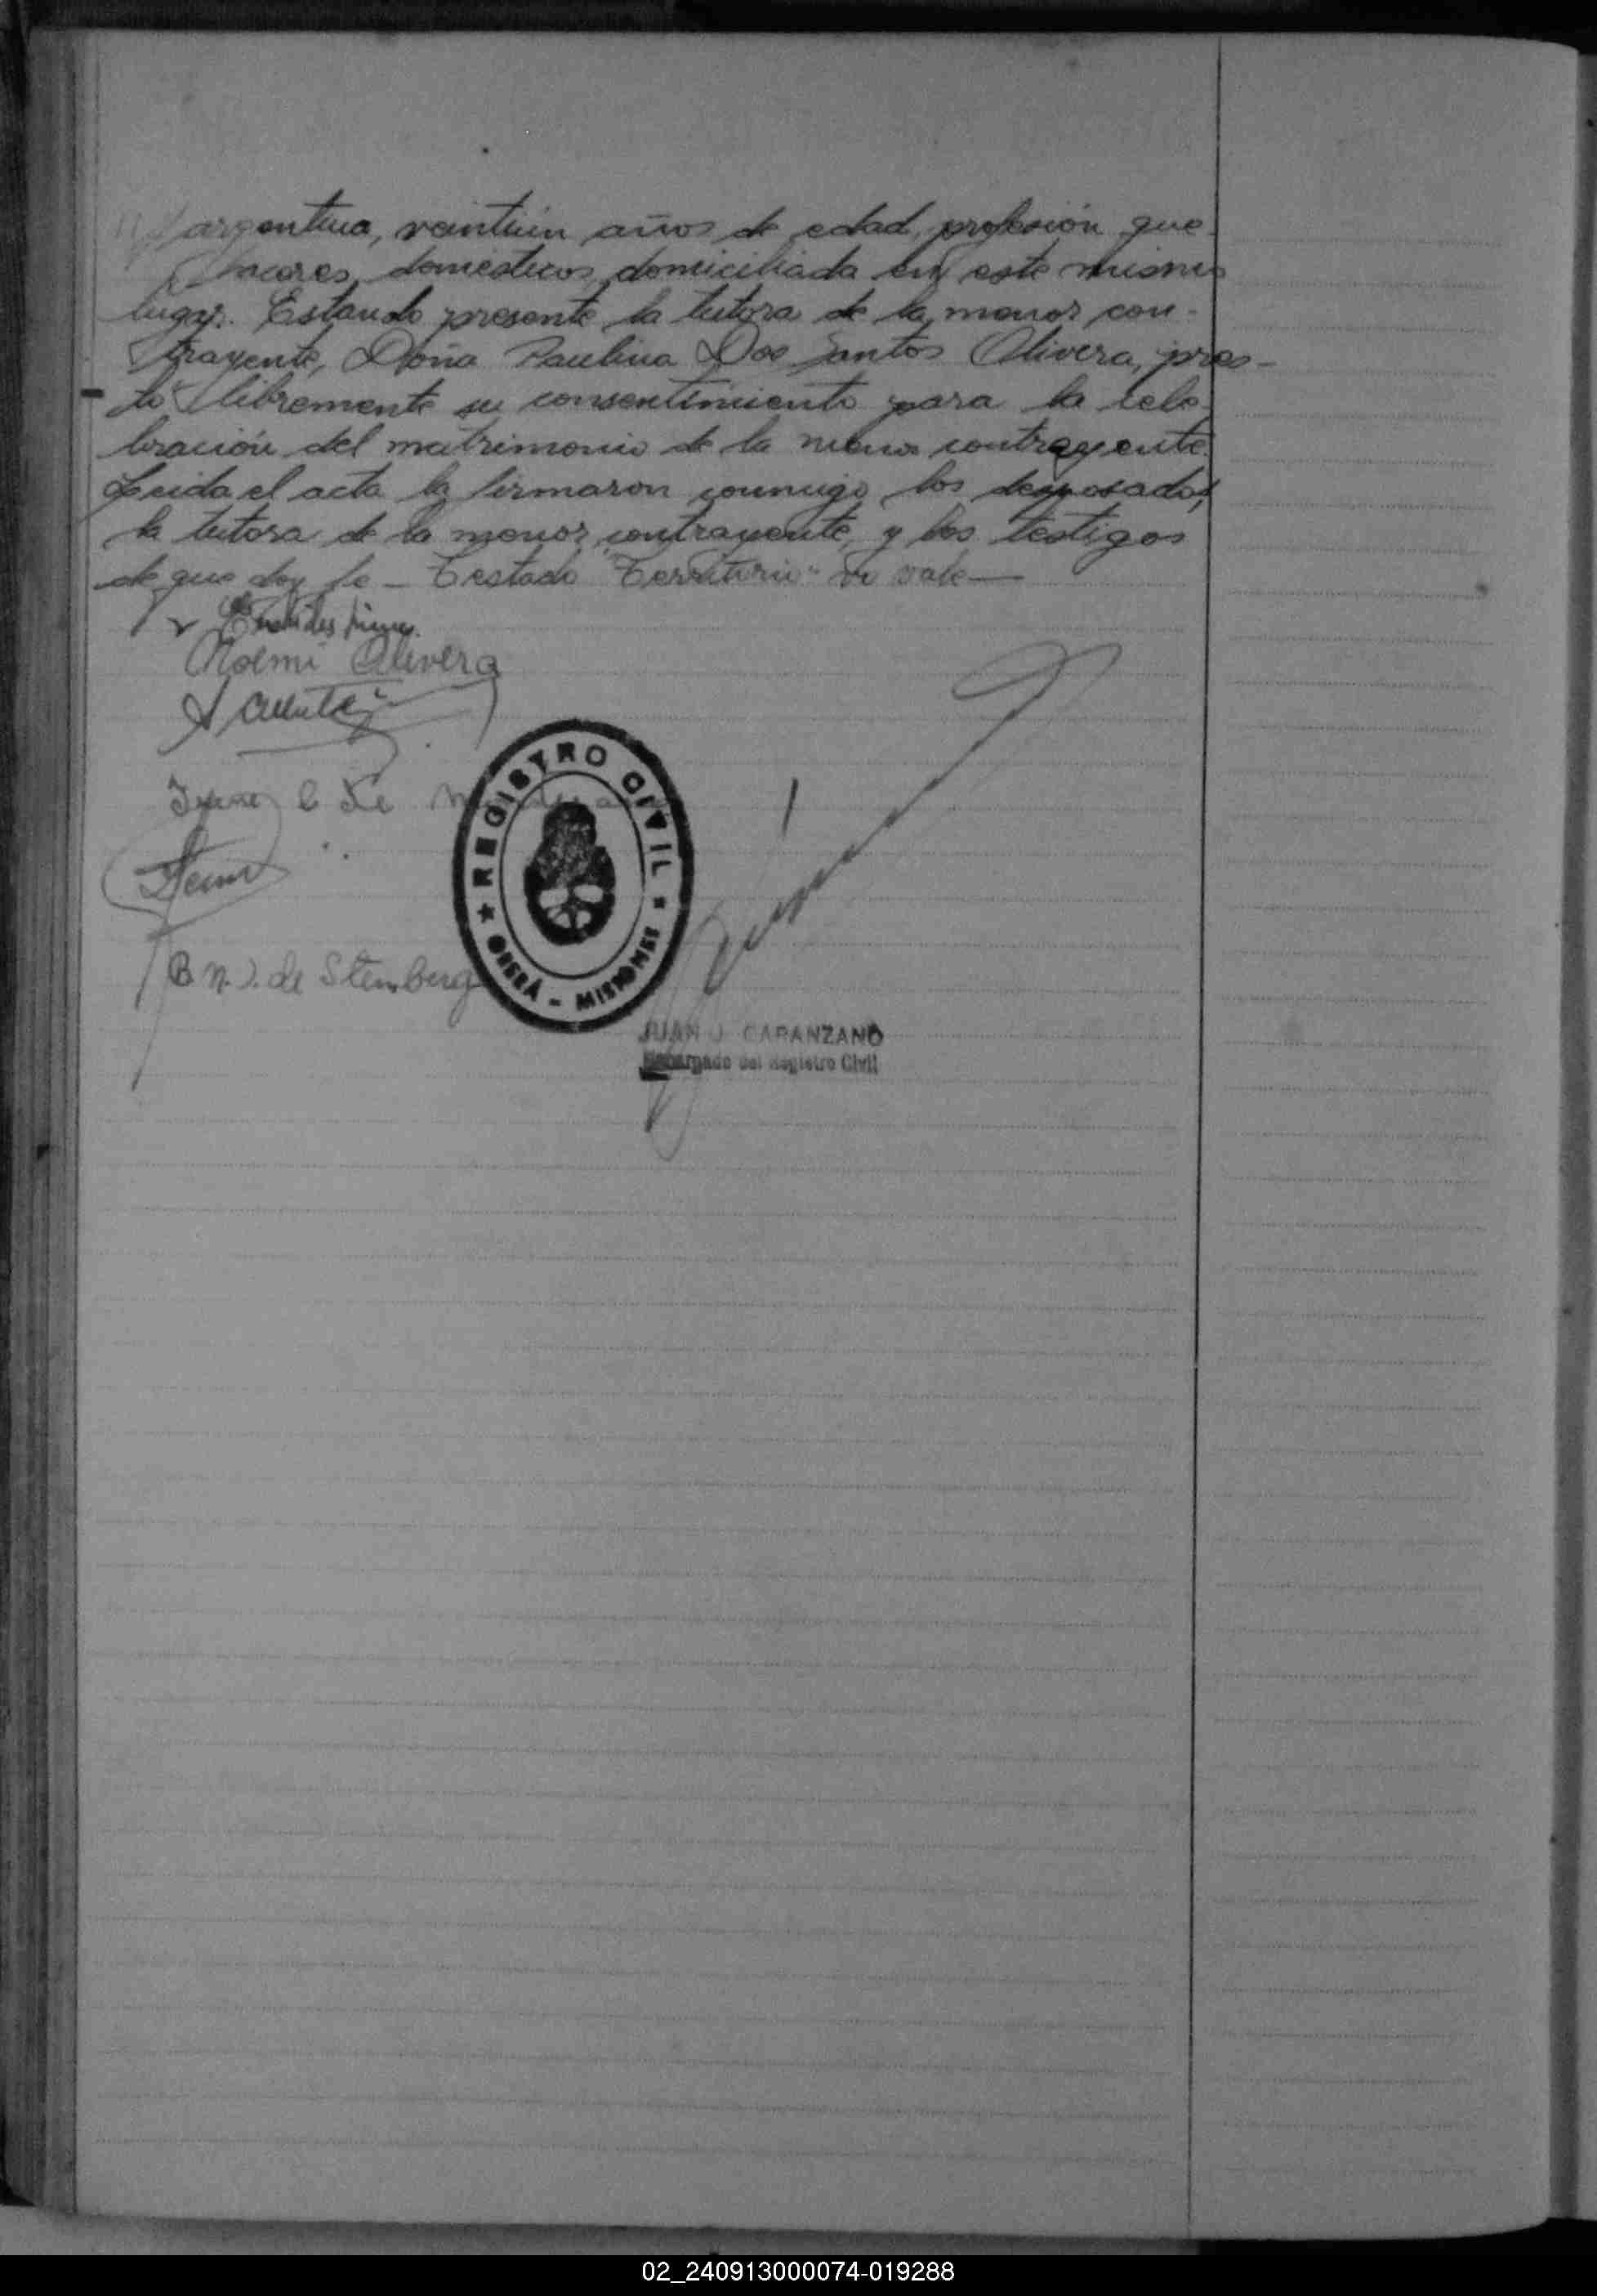 argentina, veintiún años de edad, profesión que-
haceres domésticos, domiciliada en este mismo
lugar. Estando presente la tutora de la menor con-
trayente, Doña Paulina Dos Santos Olivera, pres-
tó libremente su consentimiento para la cele-
bración del matrimonio de la menor contrayente.
Leida el acta la firmaron conmigo los desposados,
la tutora de la menor contrayente, y los testigos
de que doy fe — Testado "Territorio" no vale —
Noemi Olivera
B. N. J. de Stemberg
REGISTRO CIVIL
OBERÁ - MISIONES
JUAN J. CAPANZANO
Encargado del Registro Civil
02_240913000074-019288